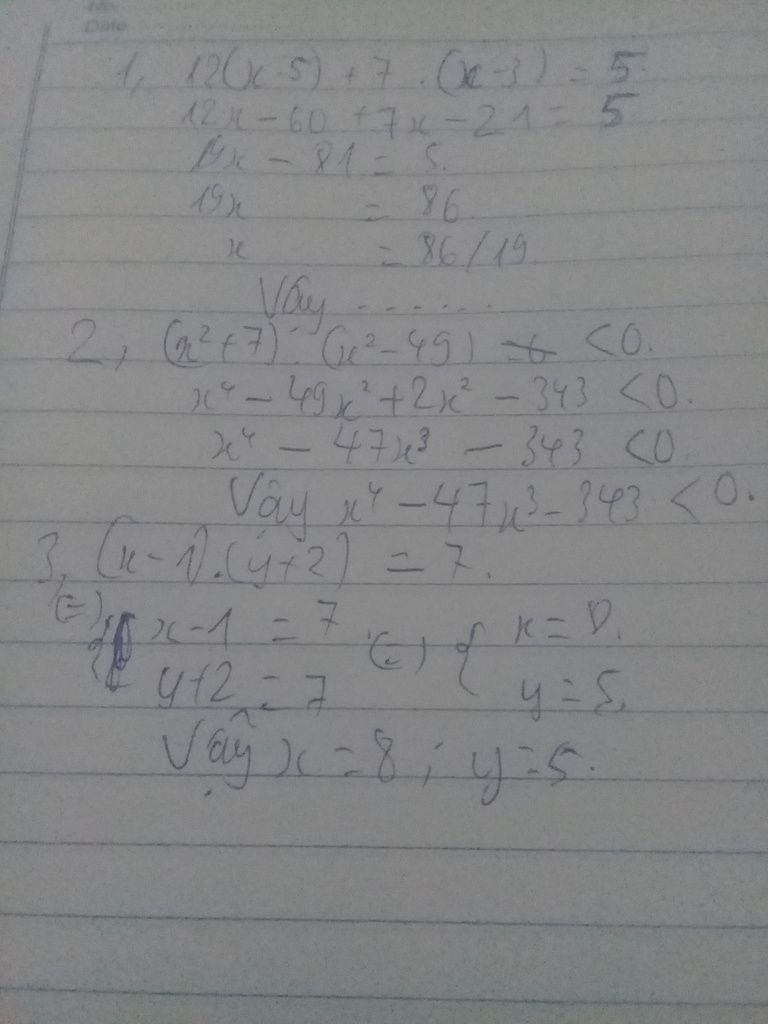 No.
Date
1, 12(x-5) + 7 . (x-3) = 5
12x - 60 + 7x - 21 = 5
19x - 81 = 5.
19x = 86
x = 86/19
Vây .......
2, (x²+7) . (x²-49) < 0.
x⁴ - 49x² + 2x² - 343 < 0.
x⁴ - 47x³ - 343 < 0
Vây x⁴ - 47x³ - 343 < 0.
3, (x-1).(y+2) = 7.
(=) { x-1 = 7 (=) { x = 8.
y+2 = 7 y = 5.
Vậy x = 8 ; y = 5.